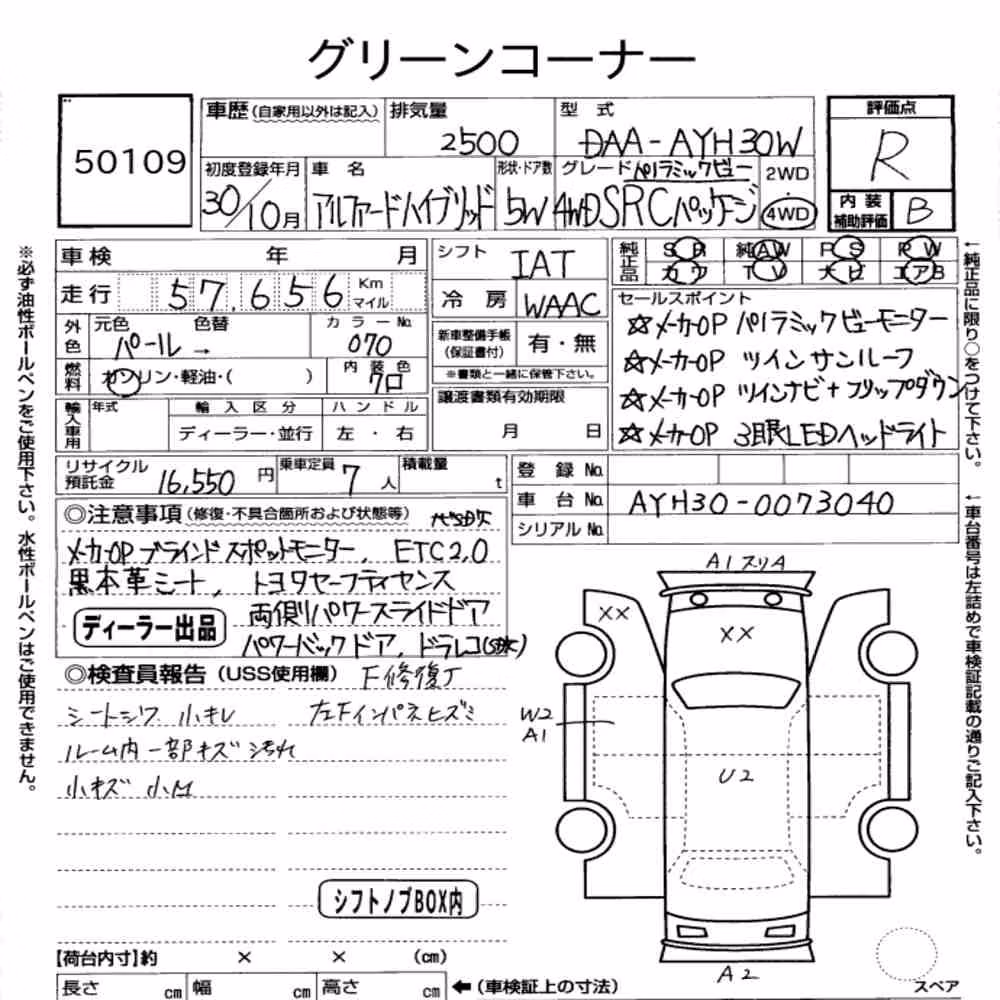 グリーンコーナー
50109
車歴(自家用以外は記入)
排気量
2500
型式
DAA-AYH30W
評価点
R
内装補助評価
B
初度登録年月
30/10月
車名
アルファードハイブリッド
形状・ドア数
5W
グレード パノラミックビュー
4WD SRCパッケージ
2WD
・
4WD
車検 年 月
走行 57,656 Km マイル
外色
元色 色替
パール →
カラーNo.
070
燃料
ガソリン・軽油・( )
内装色
クロ
輸入車用
年式
輸入区分
ディーラー・並行
ハンドル
左・右
シフト
IAT
冷房
WAAC
新車整備手帳
(保証書付)
有・無
※書類と一緒に保管下さい。
譲渡書類有効期限
月 日
純正品
SR 純AW PS PW
カワ TV ナビ エアB
セールスポイント
☆メーカーOP パノラミックビューモニター
☆メーカーOP ツインサンルーフ
☆メーカーOP ツインナビ+フリップダウン
☆メーカーOP 3眼LEDヘッドライト
リサイクル預託金
16,550円
乗車定員
7人
積載量
t
登録No.
車台No.
AYH30-0073040
シリアルNo.
◎注意事項(修復・不具合箇所および状態等)
メーカーOP ブラインドスポットモニター, ETC2.0
黒本革シート, トヨタセーフティセンス
両側パワースライドドア
ディーラー出品
パワーバックドア, ドラレコ
◎検査員報告(USS使用欄)
F修復了
シートシワ 小キレ
左Fインパネヒズミ
ルーム内一部キズ 汚れ
小キズ 小凹
シフトノブBOX内
A1スリA
XX
XX
W2
A1
U2
A2
スペア
【荷台内寸】約 × × (cm)
長さ cm 幅 cm 高さ cm
←(車検証上の寸法)
※必ず油性ボールペンをご使用下さい。水性ボールペンはご使用できません。
←純正品に限り○をつけて下さい。
←車台番号は左詰めで車検証記載の通りご記入下さい。